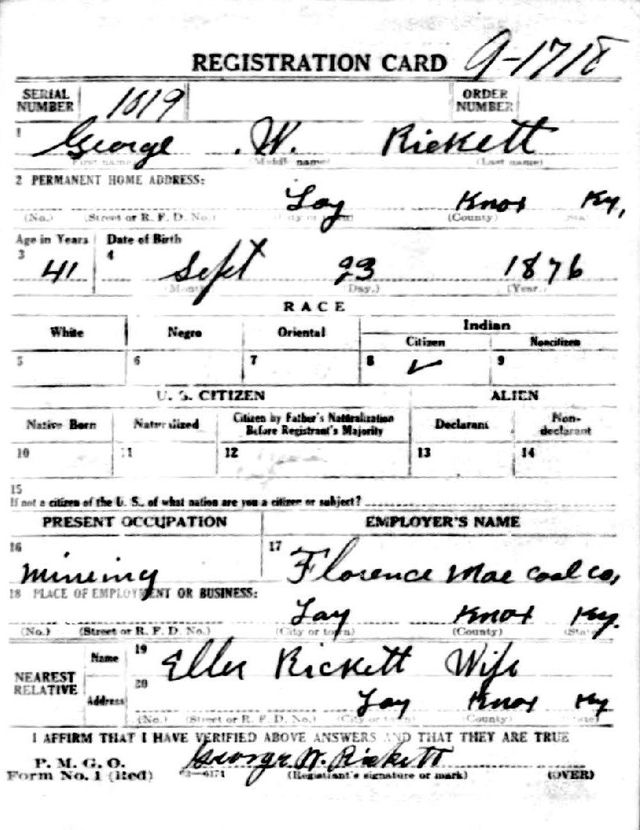 REGISTRATION CARD 9-1718
SERIAL NUMBER 1019 ORDER NUMBER
1 George W. Rickett
(First name) (Middle name) (Last name)
2 PERMANENT HOME ADDRESS:
Lay Knox Ky.
(No.) (Street or R. F. D. No.) (City or town) (County) (State)
Age in Years Date of Birth
3 41 4 Sept 23 1876
(Month) (Day.) (Year.)
RACE
White Negro Oriental Indian
Citizen Noncitizen
5 6 7 8 ✓ 9
U. S. CITIZEN ALIEN
Native Born Naturalized Citizen by Father's Naturalization Before Registrant's Majority Declarant Non-declarant
10 11 12 13 14
15
If not a citizen of the U. S., of what nation are you a citizen or subject?
PRESENT OCCUPATION EMPLOYER'S NAME
16 Mineing 17 Florence Mae Coal Co,
18 PLACE OF EMPLOYMENT OR BUSINESS:
Lay Knox Ky.
(No.) (Street or R. F. D. No.) (City or town) (County) (State)
NEAREST RELATIVE Name 19 Eller Rickett Wife
Address 20 Lay Knox Ky
(No.) (Street or R. F. D. No.) (City or town) (County) (State)
I AFFIRM THAT I HAVE VERIFIED ABOVE ANSWERS AND THAT THEY ARE TRUE
P. M. G. O.
Form No. 1 (Red) 03-6171 George W. Rickett
(Registrant's signature or mark) (OVER)